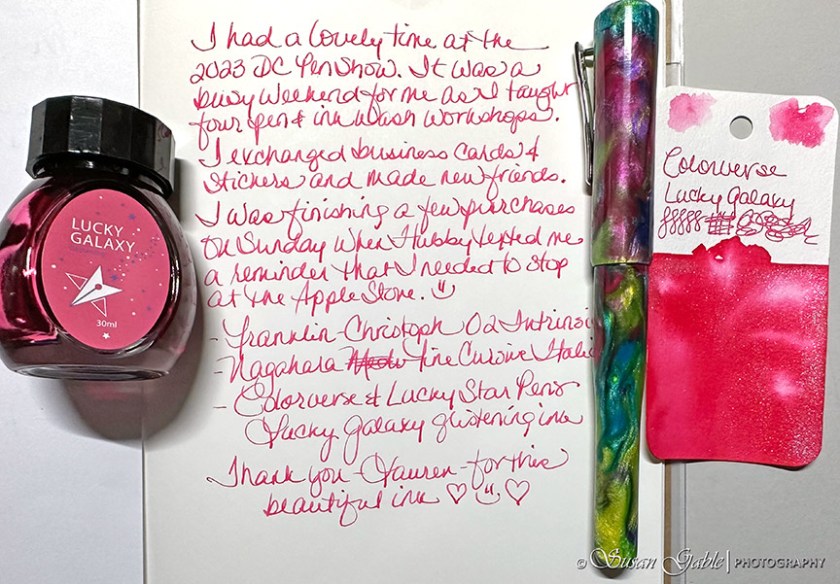 LUCKY
GALAXY
30ml
I had a lovely time at the
2023 DC Pen Show. It was a
busy weekend for me as I taught
four pen & ink wash workshops.
I exchanged business cards &
stickers and made new friends.
I was finishing a few purchases
on Sunday when Hubby texted me
a reminder that I needed to stop
at the Apple Store.
- Franklin-Christoph 02 Intrinsi
- Nagahara Fine Cursive Italic
- Colorverse & Lucky Star Pens
Lucky Galaxy glistening ink
Thank you - Lauren - for this
beautiful ink
Colorverse
Lucky Galaxy
© Susan Gable | PHOTOGRAPHY